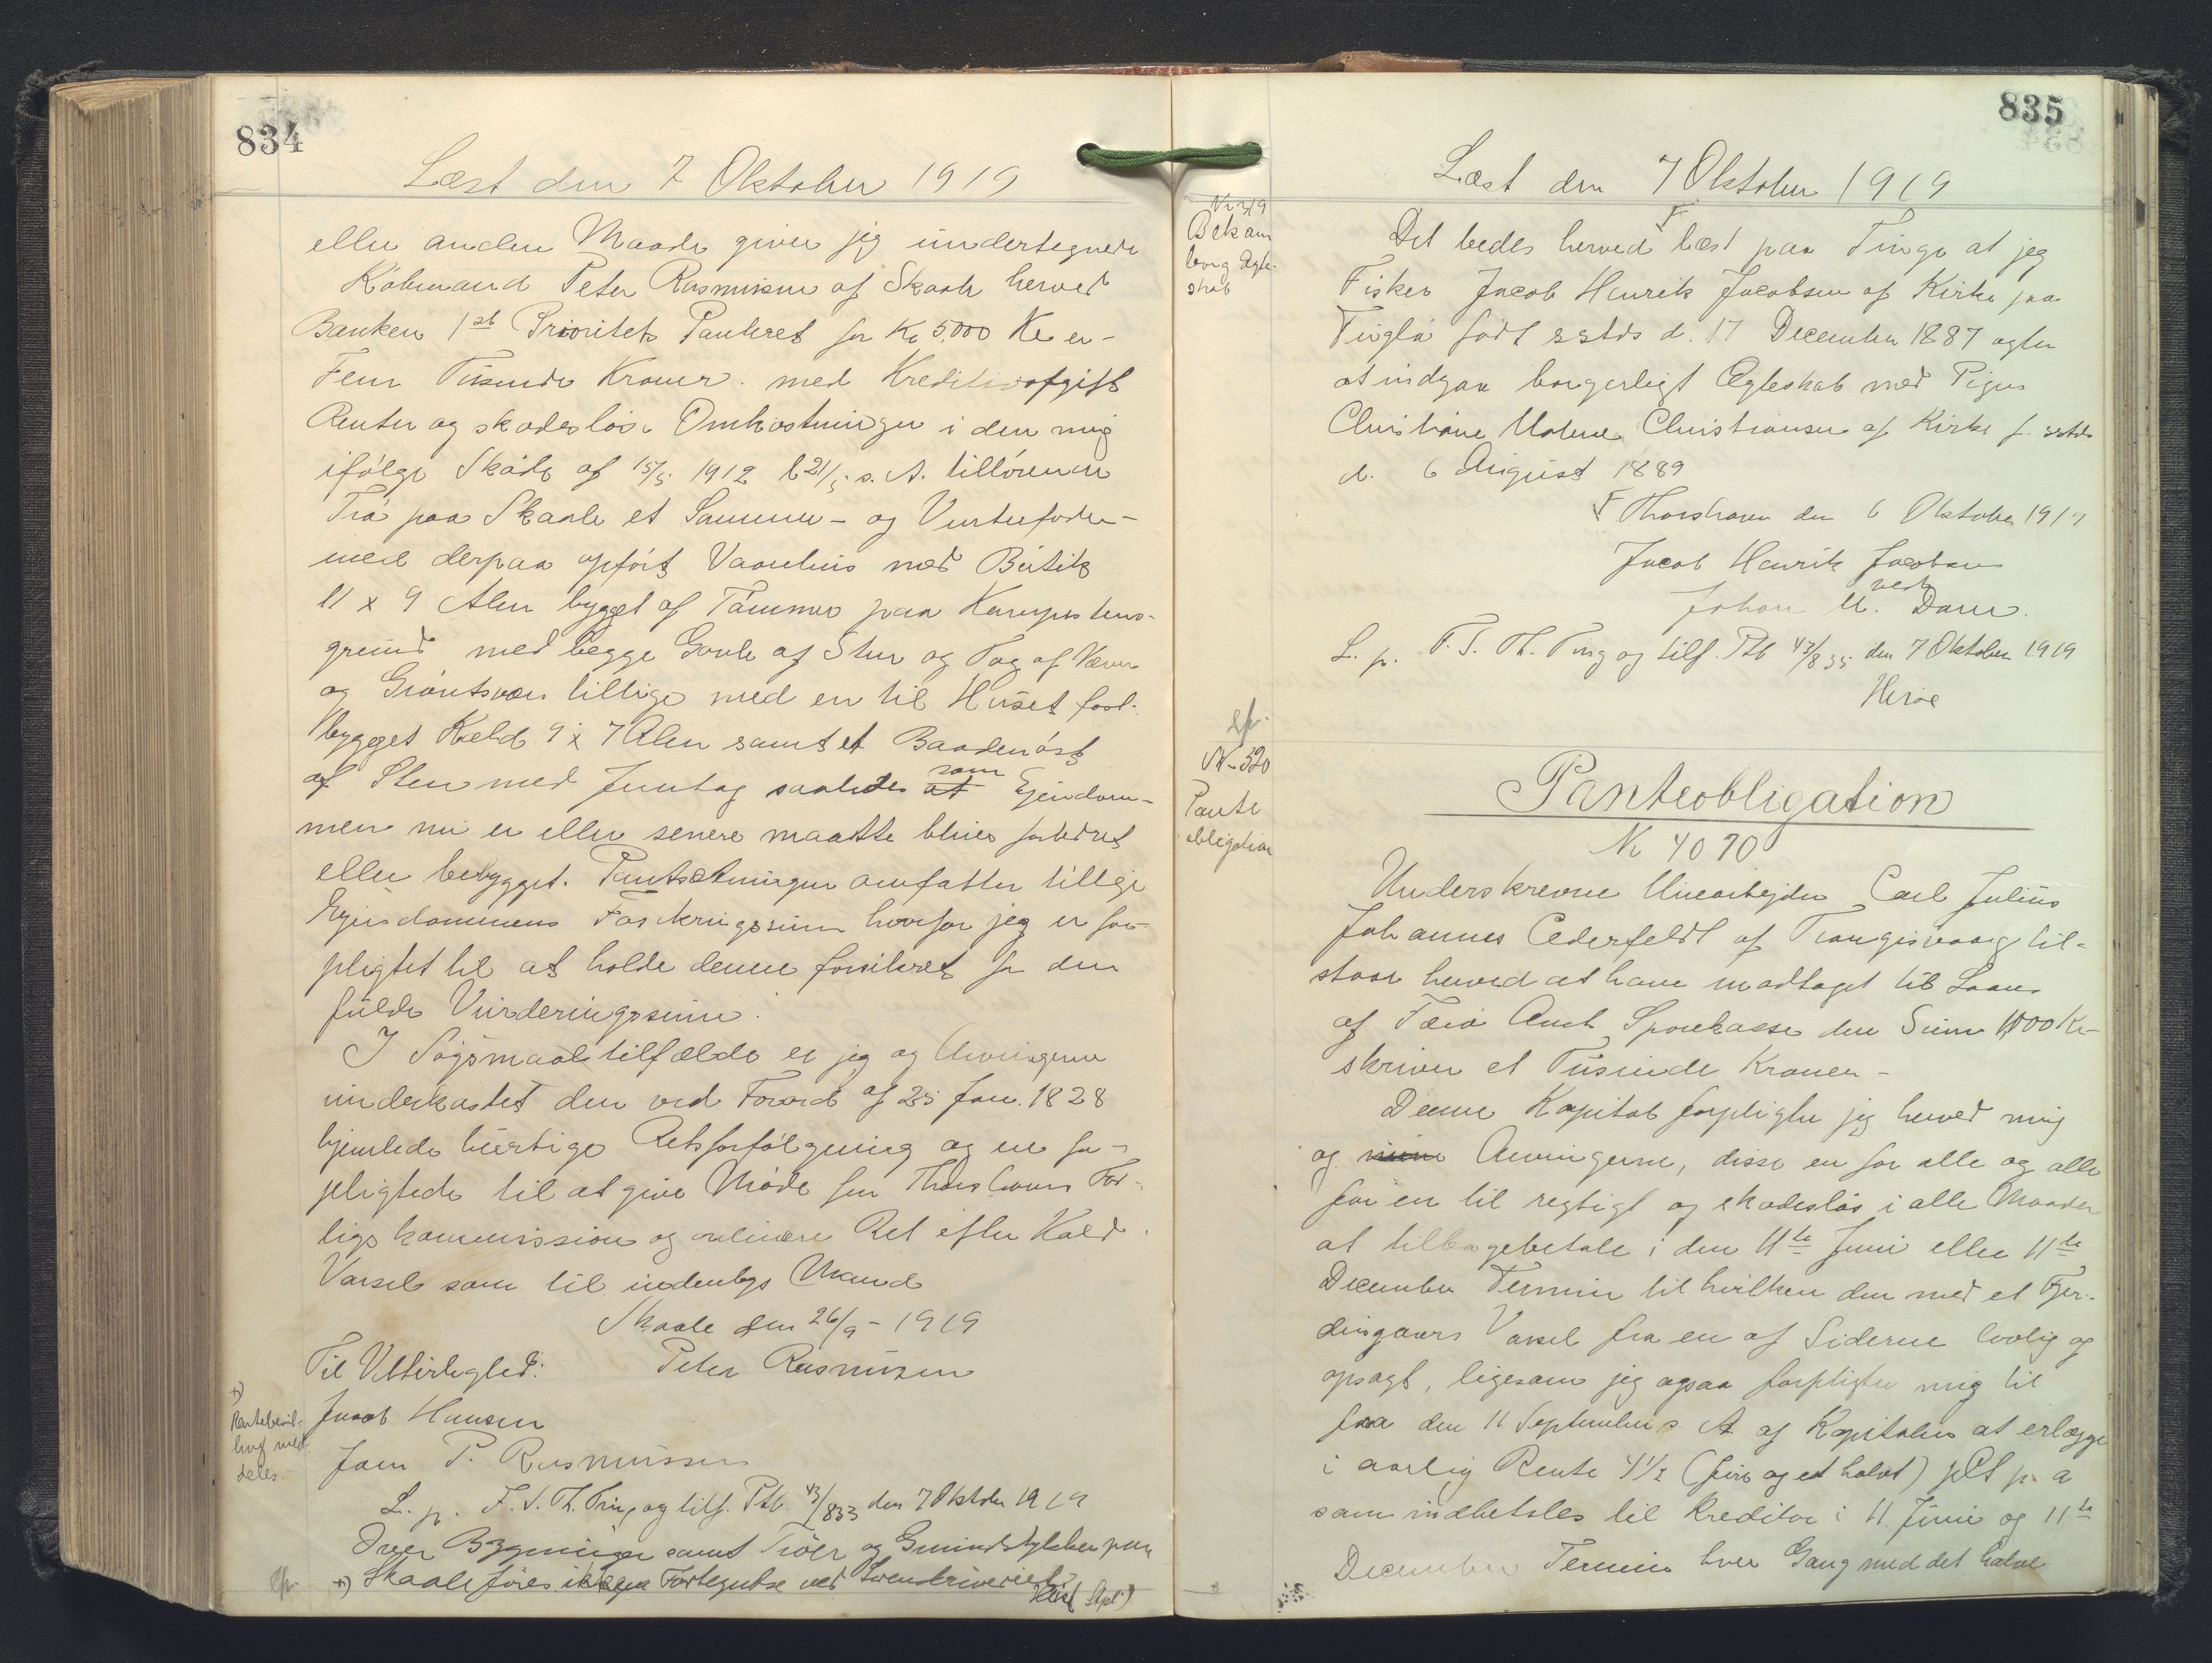 834
Læst den 7 Oktober 1919
eller anden Maade giver jeg undertegnede
Købmand Peter Rasmussen af Skaale herved
Banken 1st Prioritets Panteret for Kr 5,000 Kr er-
Fem Tusende Kroner. med Kreditivafgift
Renter og skadesløse Omkostninger i den mig
ifølge Skøde af 15/5 1912 l 21/5 s. A. tilhørende
Trø paa Skaale et Sommer- og Vinterfoder-
med derpaa opført Vaanhus med Butik
11 x 9 Alen bygget af Tømmer paa Kampestens-
grund med begge Gavle af Sten og Tag af Næver
og Grøntsvær tillige med en til Huset fast-
bygget Kæld 9 x 7 Alen samt et Baadenøst
af Sten med Jerntag saaledes at som Ejendom-
men nu er eller senere maatte blive forbedret
eller bebygget. Pantsætningen omfatter tillige
Ejendommens Forsikringssum hvorfor jeg er for-
pligtet til at holde denne forsikret for den
fulde Vurderingssum.
I Søgsmaalstilfælde er jeg og Arvingerne
underkastet den ved Forord af 25 Jan. 1828
hjemlede hurtige Retsforfølgning og ere for-
pligtede til at give Møde for Thorshavns For-
ligskommission og ordinære Ret efter Kald.
Varsel som til indenbys Mand
Skaale den 26/9 - 1919
Til Vitterlighed: Peter Rasmussen
Jacob Hansen
P. Rasmussen
+)
Rentebevil-
ling med-
deles.
L. p. F. S. Th. Ting og tilf. Ptb. 43/833 den 7 Oktober 1919
Over Bygninger samt Trøer og Grundstykker paa
+) Skaale føres ikke Fortegnelse ved Sorenskriveriet
835
Læst den 7 Oktober 1919
Nr 319
Bekam
borg Ægte-
skab
Det bedes herved F læst paa Tinge at jeg
Fisker Jacob Henrik Jacobsen af Kirke paa
Fuglø født sstds d. 17 December 1887 agter
at indgaa borgerligt Ægteskab med Pigen
Christiane Malene Christiansen af Kirke f. sstds
d. 6 August 1889
F Thorshavn den 6 Oktober 1919
Jacob Henrik Jacobsen
ved
Johan M. Dam.
L. p. F. S. Th. Ting og tilf. Ptb 43/835 den 7 Oktober 1919
Nr 320
Pante
obligation
Panteobligation
Nr 4070
Underskrevne Minearbejder Carl Julius
Johannes Cederfeldt af Trangisvaag til-
staar herved at have modtaget til Laans
af Færø Amts Sparekasse den Sum 1000 Kr-
skriver et Tusinde Kroner -
Denne Kapital forpligter jeg herved mig
og mine Arvingerne, disse en for alle og alle
for en til rigtigt og skadesløs i alle Maader
at tilbagebetale i den 11te Juni eller 11te
December Termin til hvilken den med et Fjer-
dingaars Varsel fra en af Siderne lovlig og
opsagt, ligesom jeg ogsaa forpligter mig til
fra den 11 September s. A. af Kapitalen at erlægge
i aarlig Rente 4 1/2 (fire og et halvt) pCt p. a
som indbetales til Kreditor i 11 Juni og 11te
December Termin hver Gang med det halve